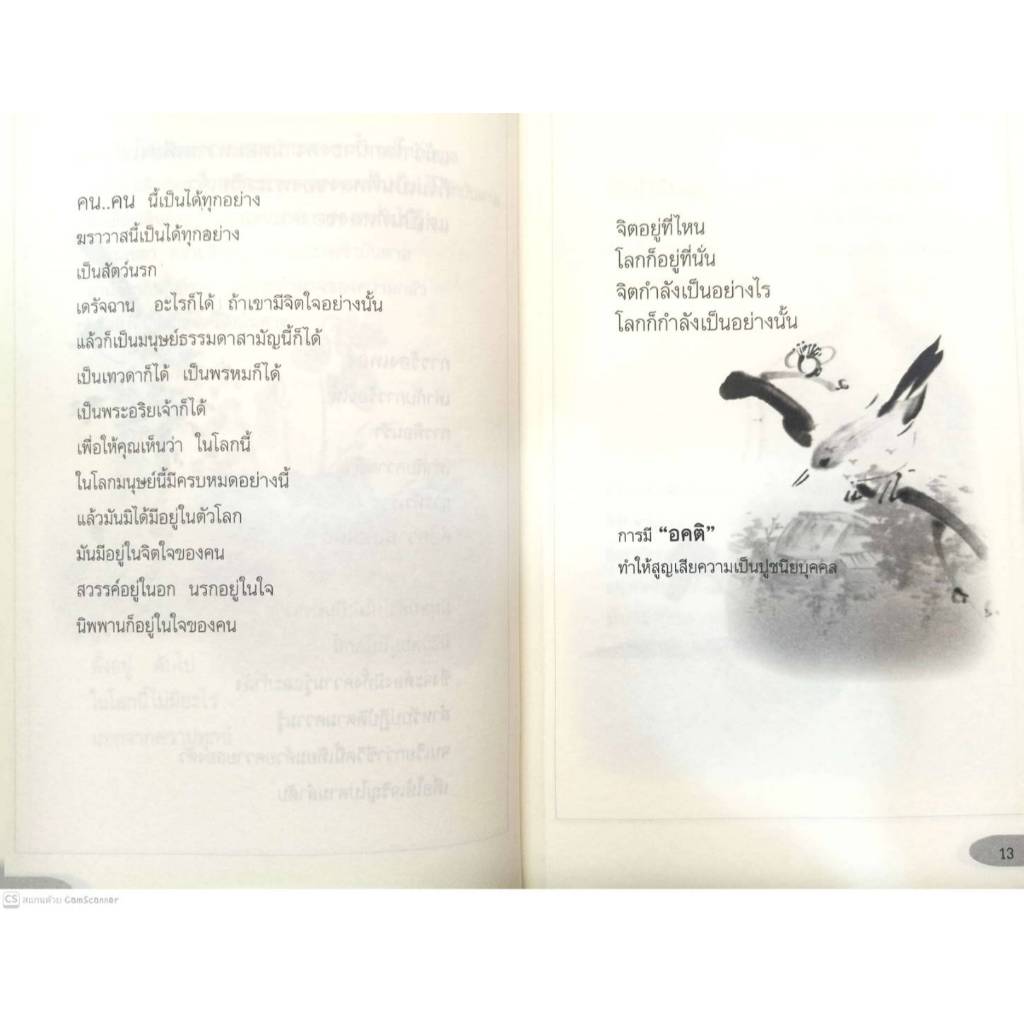 คน..คน นี้เป็นได้ทุกอย่าง
ฆราวาสนี้เป็นได้ทุกอย่าง
เป็นสัตว์นรก
เดรัจฉาน อะไรก็ได้ ถ้าเขามีจิตใจอย่างนั้น
แล้วก็เป็นมนุษย์ธรรมดาสามัญนี้ก็ได้
เป็นเทวดาก็ได้ เป็นพรหมก็ได้
เป็นพระอริยเจ้าก็ได้
เพื่อให้คุณเห็นว่า ในโลกนี้
ในโลกมนุษย์นี้มีครบหมดอย่างนี้
แล้วมันมิได้มีอยู่ในตัวโลก
มันมีอยู่ในจิตใจของคน
สวรรค์อยู่ในอก นรกอยู่ในใจ
นิพพานก็อยู่ในใจของคน
จิตอยู่ที่ไหน
โลกก็อยู่ที่นั่น
จิตกำลังเป็นอย่างไร
โลกก็กำลังเป็นอย่างนั้น
การมี “อคติ”
ทำให้สูญเสียความเป็นปูชนียบุคคล
13
CS สแกนด้วย CamScanner